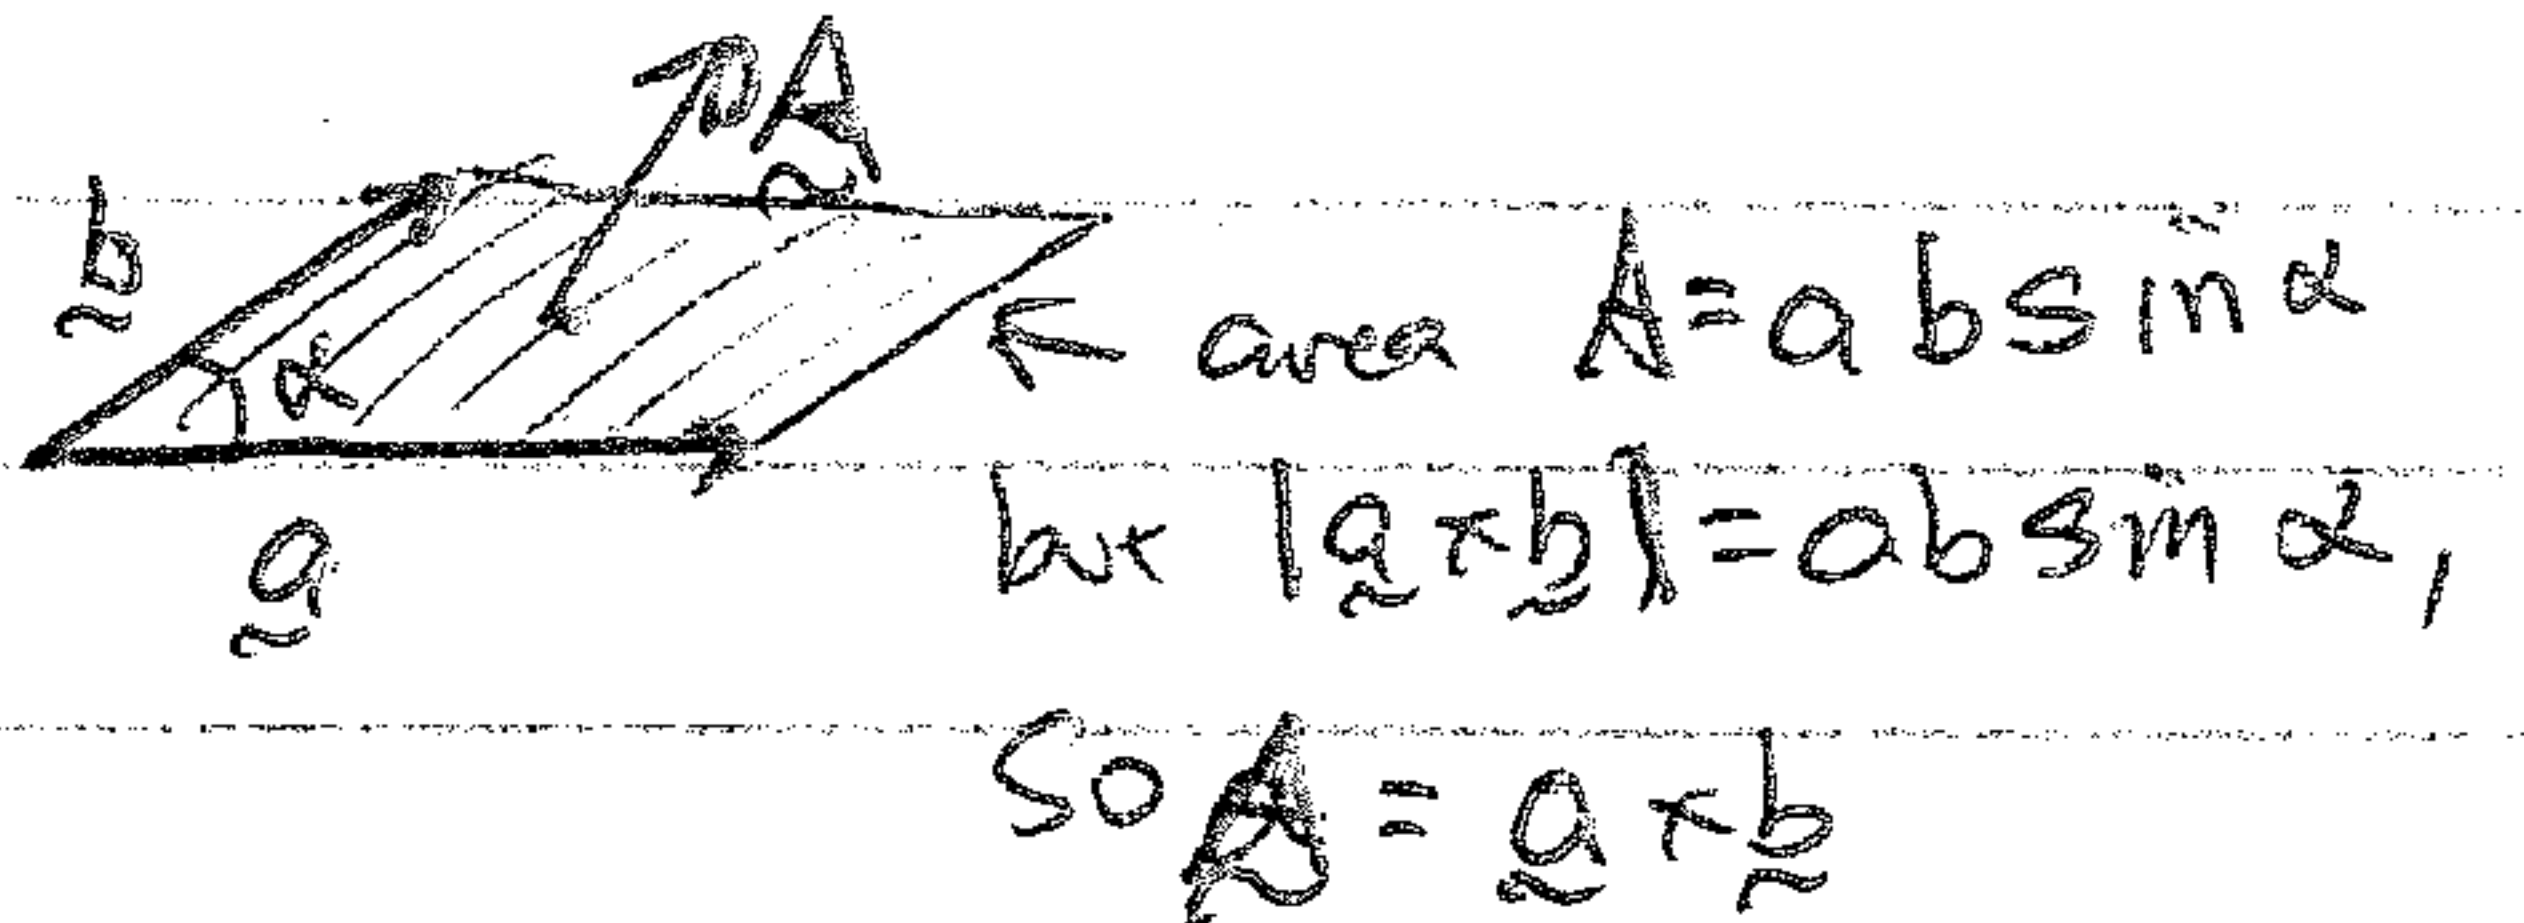 A̰
b̰
α
← area A = a b sin α
a̰
but |a̰ × b̰| = ab sin α,
so A̰ = a̰ × b̰